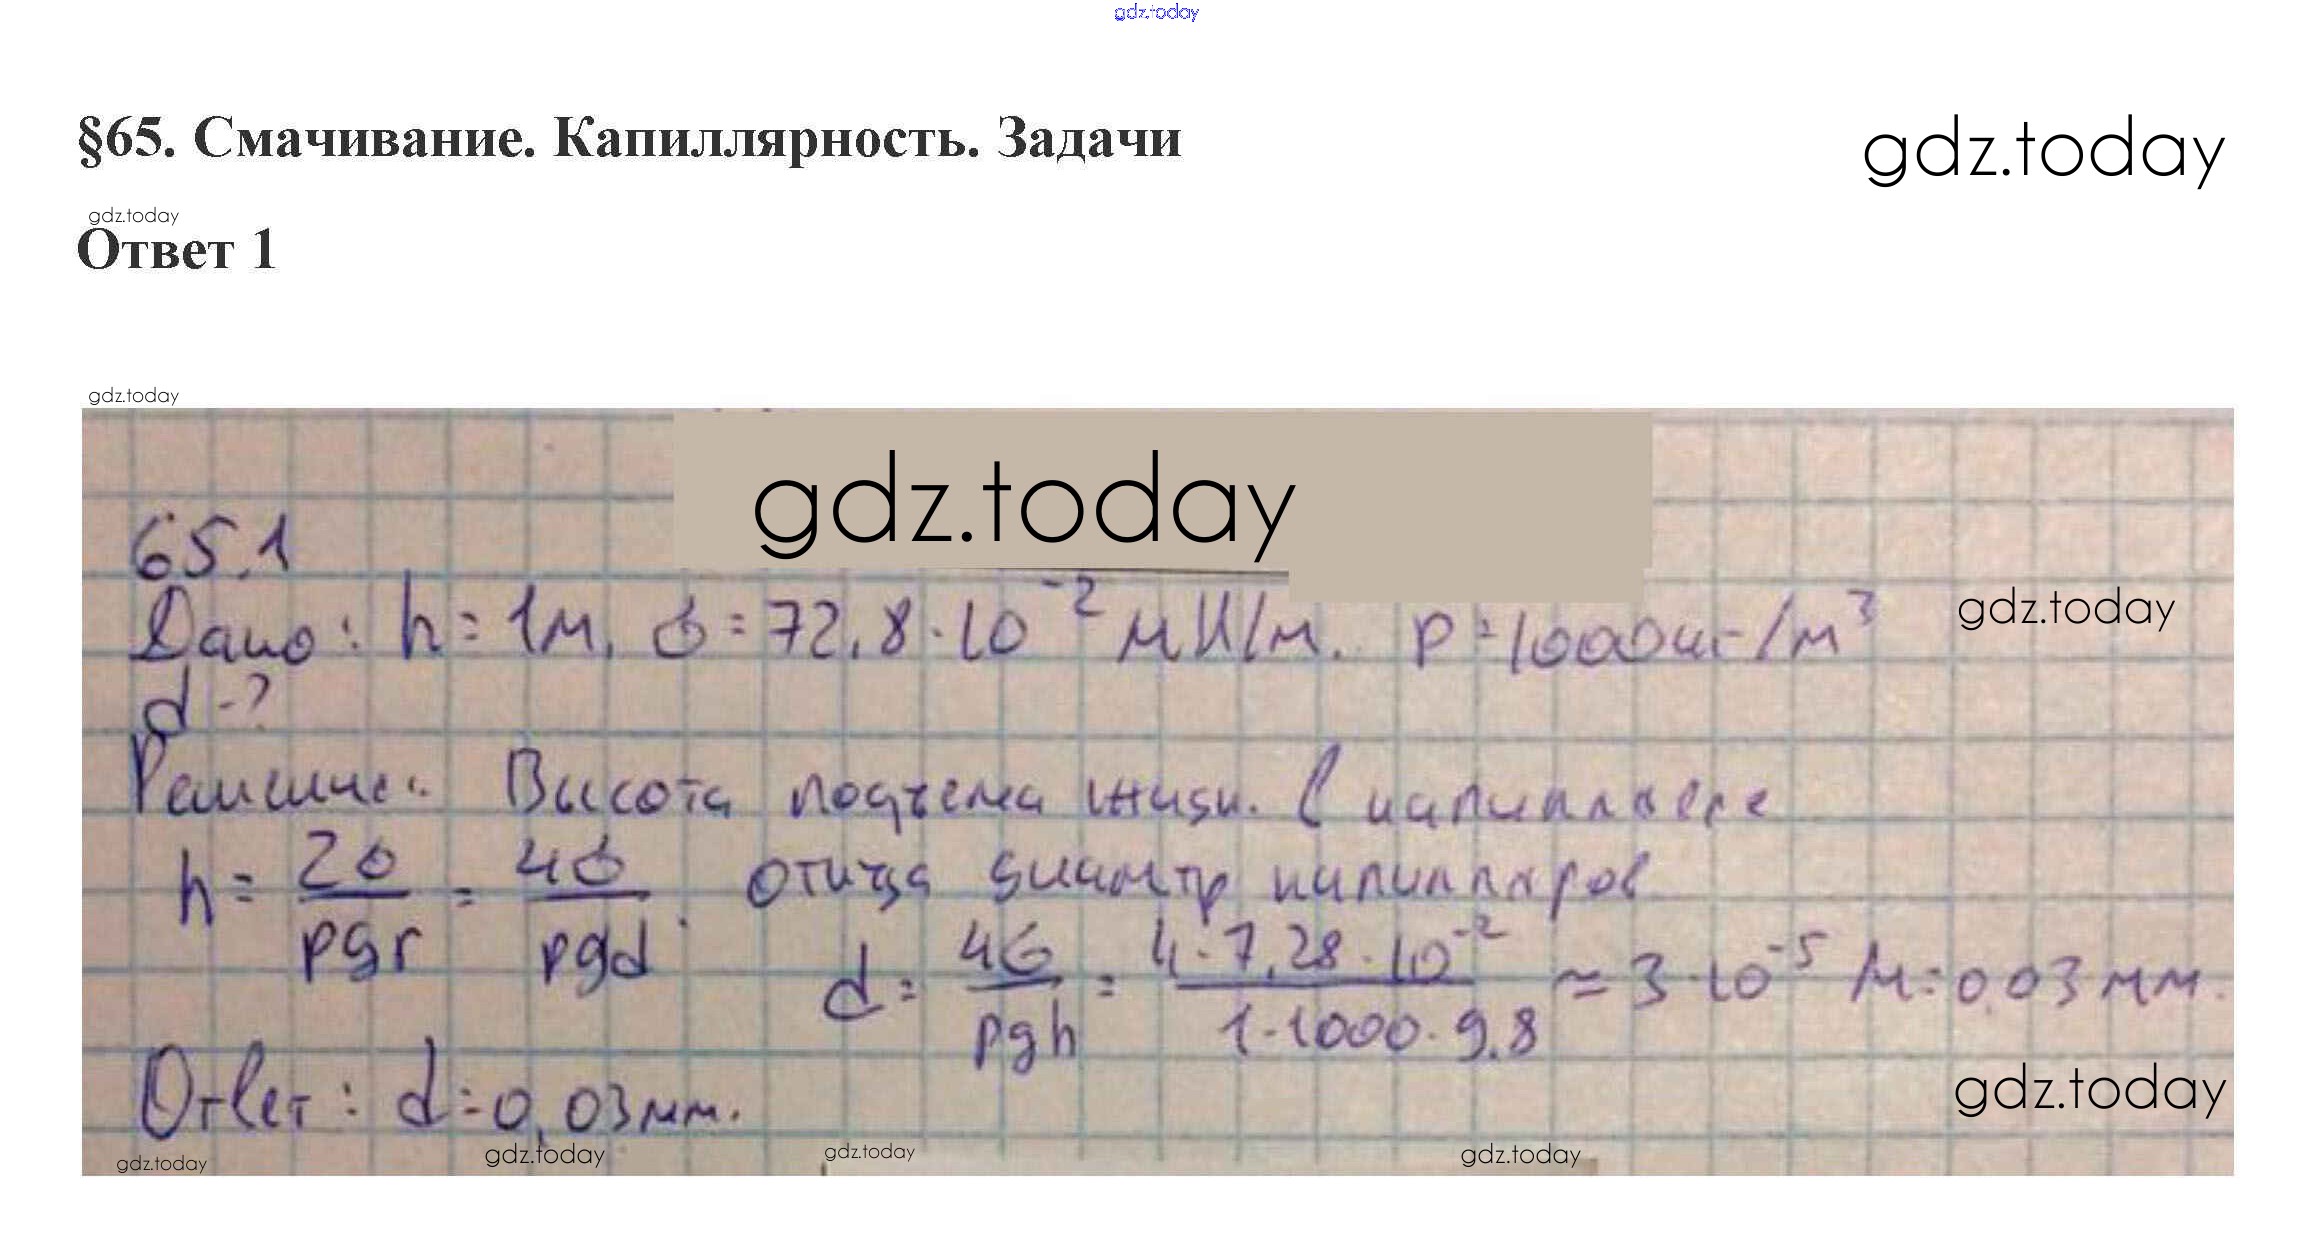 gdz.today
§65. Смачивание. Капиллярность. Задачи
gdz.today
gdz.today
Ответ 1
gdz.today
gdz.today
65.1
Дано: h = 1м, σ = 72,8·10⁻² мН/м. ρ = 1000кг/м³
gdz.today
d -?
Решение: Высота подъема жидк. в капилляре
h = 2σ/ρgr = 4σ/ρgd. отсюда диаметр капилляров
d = 4σ/ρgh = 4·7,28·10⁻²/1·1000·9,8 ≈ 3·10⁻⁵ м = 0,03 мм.
Ответ: d = 0,03 мм.
gdz.today
gdz.today
gdz.today
gdz.today
gdz.today